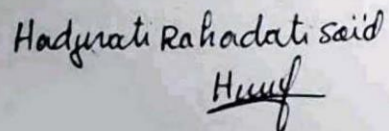 Hadjirati Rahadati Saïd